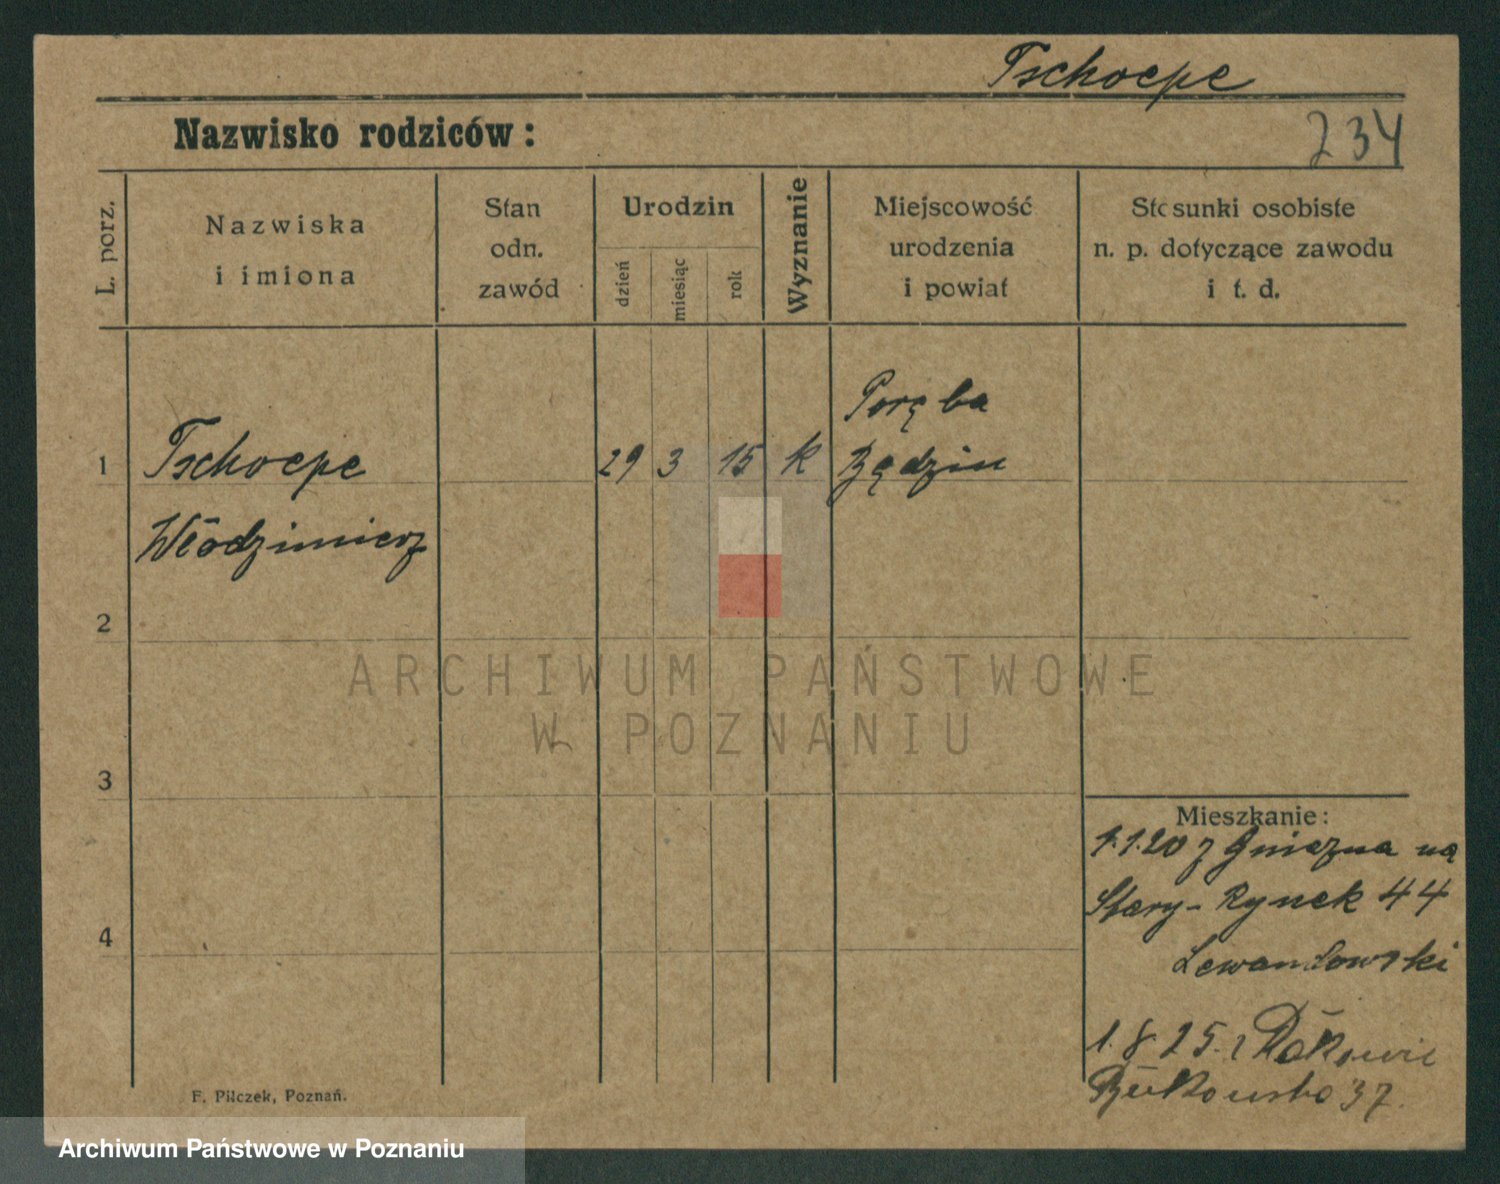 Tschoepe
Nazwisko rodziców:
234
L. porz.
Nazwiska
i imiona
Stan
odn.
zawód
Urodzin
dzień
miesiąc
rok
Wyznanie
Miejscowość
urodzenia
i powiat
Stosunki osobiste
n. p. dotyczące zawodu
i t. d.
Poręba
1 Tschoepe 29 3 15 k Będzin
Włodzimierz
2
ARCHIWUM PAŃSTWOWE
W POZNANIU
3
Mieszkanie:
1.1.20 z Gniezna na
Stary-Rynek 44
4
Lewandowski
1.8.25.
Bukowska 37.
F. Pilczek, Poznań.
Archiwum Państwowe w Poznaniu